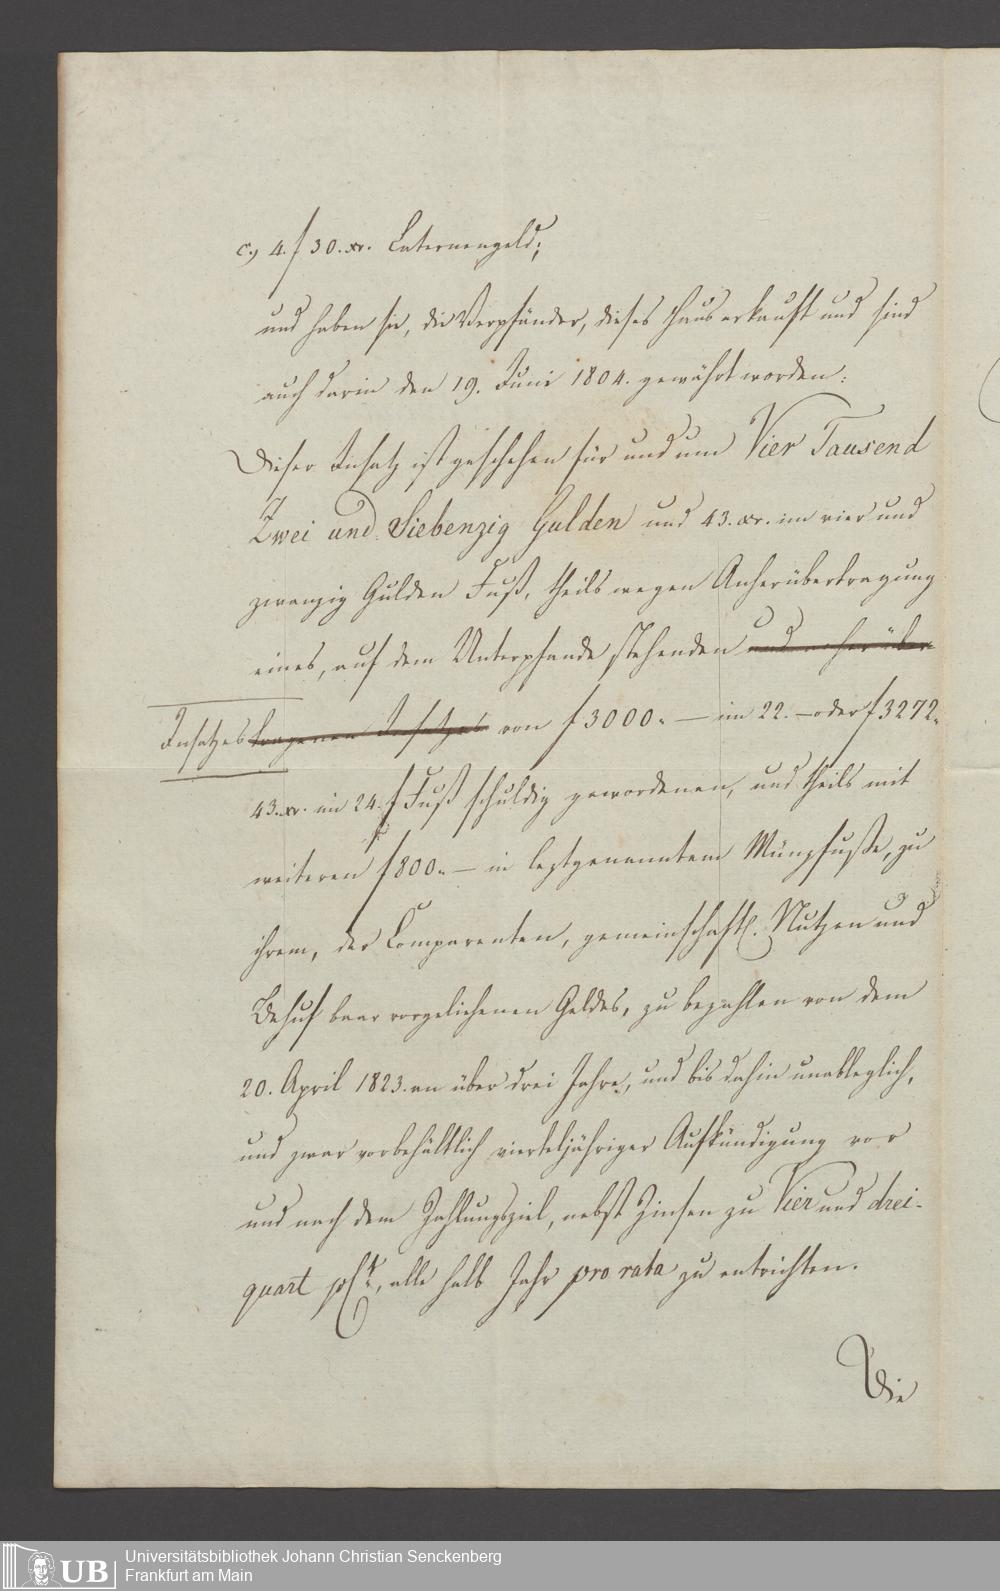 c.) 4. f 30. xr. Laternengeld;
und haben sie, die Verpfänder, dieses Haus erkauft und sind
auch darin den 19. Juni 1804. gewährt worden:
Dieser Insatz ist geschehen für und um Vier Tausend
Zwei und Siebenzig Gulden und 43. xr. im vier und
zwanzig Gulden Fuß, theils wegen Anherübertragung
eines, auf dem Unterpfande stehenden und anher über-
Insatzes tragenen Insatzes von f 3000. — im 22. — oder f 3272.
43. xr. im 24. f Fuß schuldig gewordenen, und theils mit
weiteren f 800. — in leztgenanntem Münzfuße, zu
ihrem, der Comparenten, gemeinschaftl. Nutzen und
Behuf baar vorgeliehenen Geldes, zu bezahlen von dem
20. April 1823. an über drei Jahre, und bis dahin unableglich,
und zwar vorbehältlich vierteljähriger Aufkündigung vor
und nach dem Zahlungsziel, nebst Zinsen zu Vier und drei-
quart pCt., alle halb Jahr pro rata zu entrichten.
Die
UB Universitätsbibliothek Johann Christian Senckenberg
Frankfurt am Main